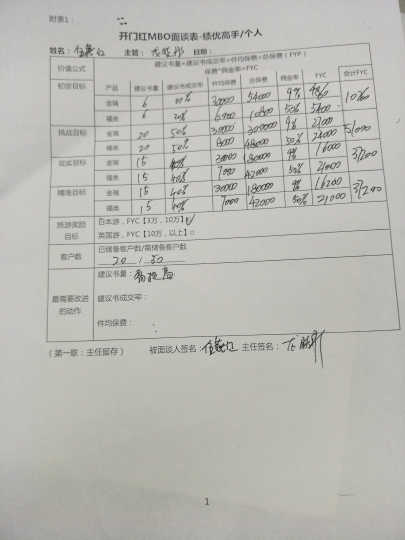 附表1：
开门红MBO面谈表-绩优高手/个人
姓名： 主管： 日期：
价值公式 建议书量*建议书成交率*件均保费=总保费（FYP）
保费*佣金率=FYC
初定目标 产品 建议书量 建议书成交率 件均保费 总保费 佣金率 FYC 合计FYC
金瑞 6 30% 30000 54000 9% 4860
福类 6 30% 6000 10800 50% 5400
挑战目标 金瑞 20 50% 30000 300000 9% 27000 51000
福类 20 50% 8000 48000 50% 24000
双实目标 金瑞 15 40% 30000 180000 9% 16000 37200
福类 15 40% 7000 42000 50% 21000
精准目标 金瑞 15 40% 30000 180000 9% 16200 37200
福类 15 40% 7000 42000 50% 21000
旅游奖励 日本游，FYC【3万，10万】
目标 英国游，FYC【10万，以上】□
客户数 已储备客户数/需储备客户数
20 / 50
建议书量：
最需要改进 建议书成交率：
的动作
件均保费：
（第一联：主任留存） 被面谈人签名： 主任签名：
1